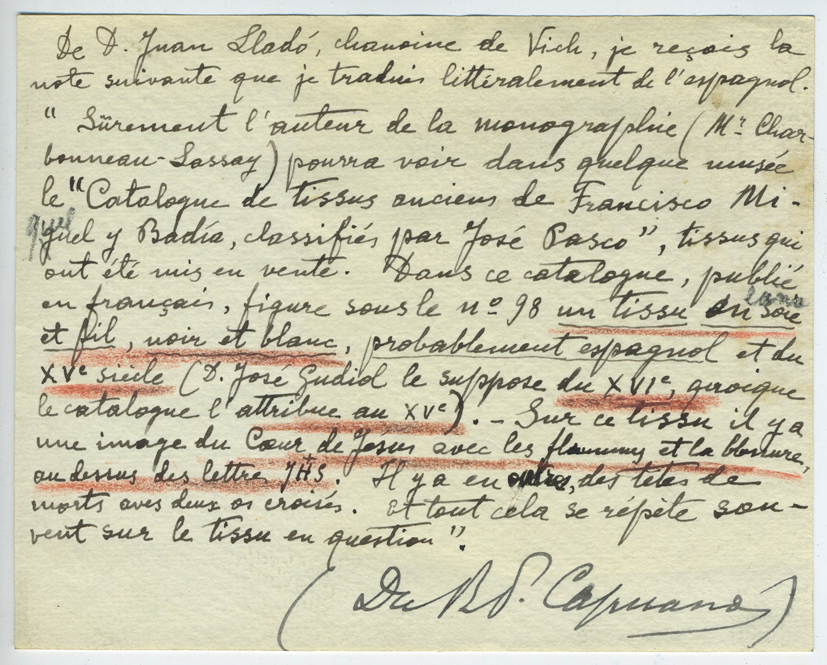 De D. Juan Lladó, chanoine de Vich, je reçois la
note suivante que je traduis littéralement de l'espagnol.
" Sûrement l'auteur de la monographie (Mr Char-
bonneau-Lassay) pourra voir dans quelque musée
le "Catalogue de tissus anciens de Francisco Mi-
guel y Badía, classifiés par José Pasco", tissus qui
ont été mis en vente. Dans ce catalogue, publié
en français, figure sous le nº 98 un tissu en soie
et fil, noir et blanc, probablement espagnol et du
XVe siècle (D. José Gudiol le suppose du XVIe, quoique
le catalogue l'attribue au XVe). - Sur ce tissu il y a
une image du Cœur de Jesus avec les flammes et la blessure,
au dessus des lettre JHS. Il y a en outre, des têtes de
morts aves deux os croisés. Et tout cela se répète sou-
vent sur le tissu en question".
(Du R. P.